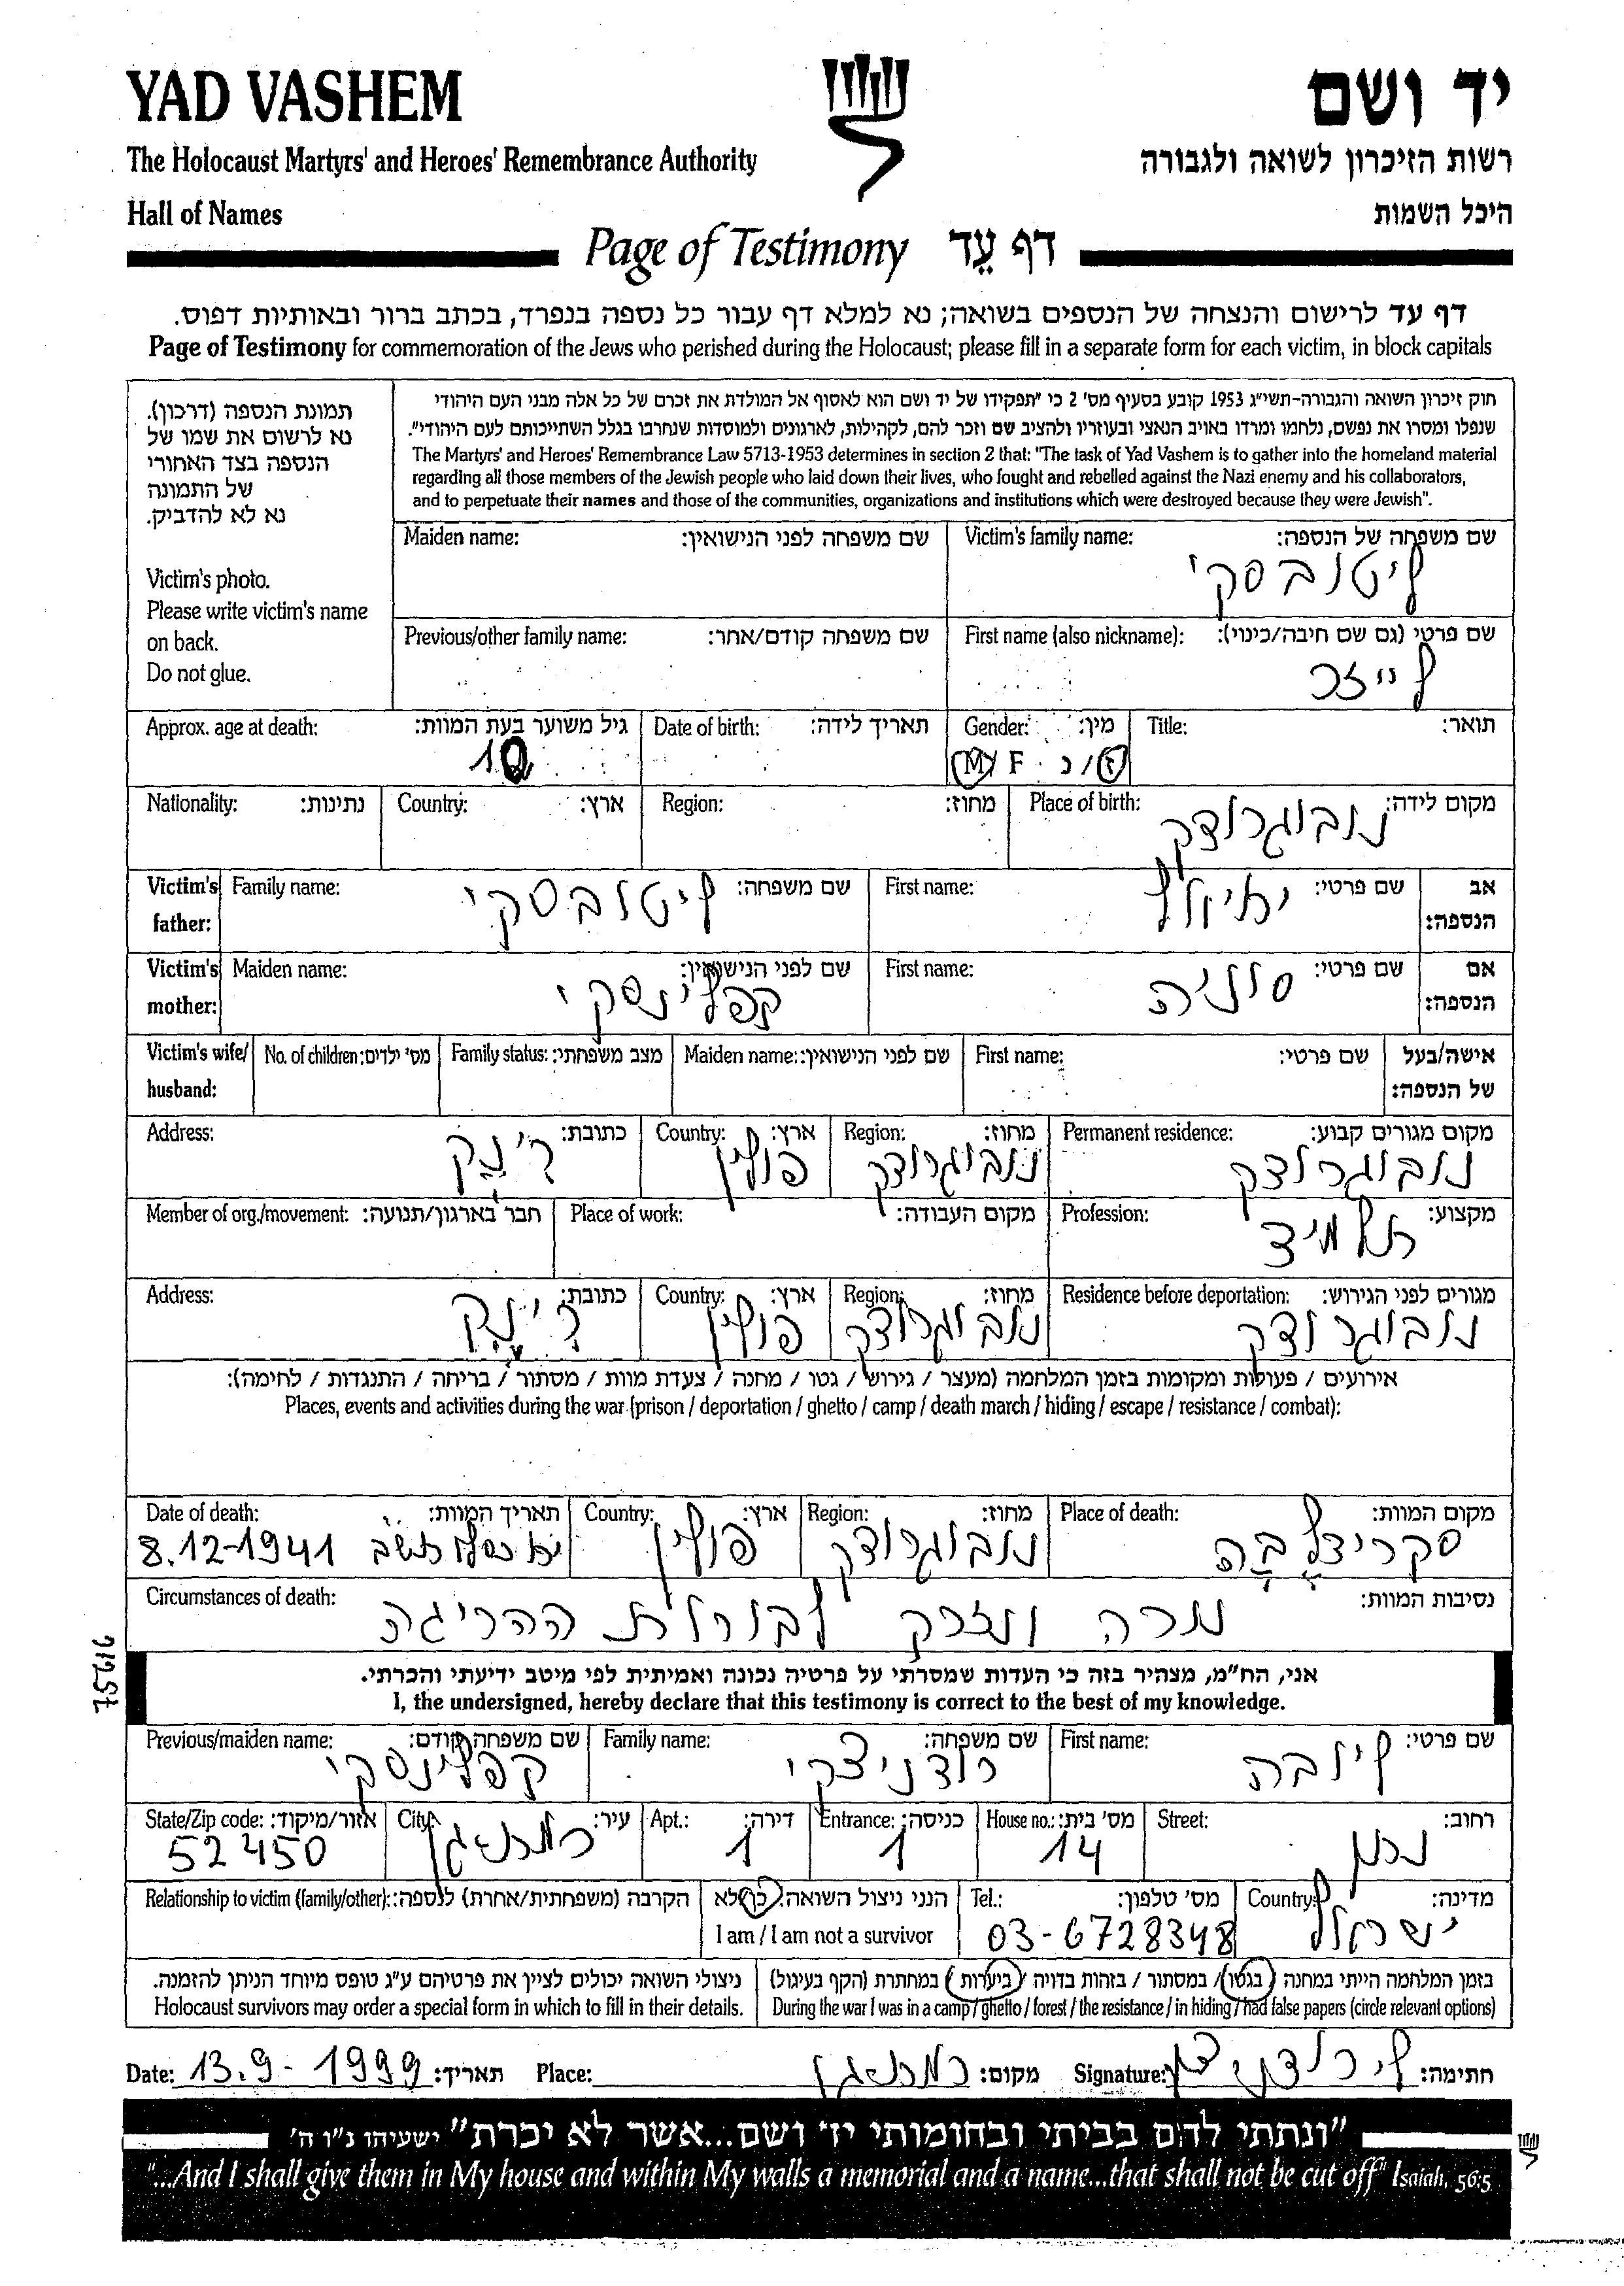 YAD VASHEM
יד ושם
The Holocaust Martyrs' and Heroes' Remembrance Authority
רשות הזיכרון לשואה ולגבורה
Hall of Names
היכל השמות
Page of Testimony דף עֵד
דף עד לרישום והנצחה של הנספים בשואה; נא למלא דף עבור כל נספה בנפרד, בכתב ברור ובאותיות דפוס.
Page of Testimony for commemoration of the Jews who perished during the Holocaust; please fill in a separate form for each victim, in block capitals
תמונת הנספה (דרכון).
נא לרשום את שמו של
הנספה בצד האחורי
של התמונה
נא לא להדביק.
Victim's photo.
Please write victim's name
on back.
Do not glue.
חוק זיכרון השואה והגבורה-תשי"ג 1953 קובע בסעיף מס' 2 כי "תפקידו של יד ושם הוא לאסוף אל המולדת את זכרם של כל אלה מבני העם היהודי
שנפלו ומסרו את נפשם, נלחמו ומרדו באויב הנאצי ובעוזריו ולהציב שם וזכר להם, לקהילות, לארגונים ולמוסדות שנחרבו בגלל השתייכותם לעם היהודי".
The Martyrs' and Heroes' Remembrance Law 5713-1953 determines in section 2 that: "The task of Yad Vashem is to gather into the homeland material
regarding all those members of the Jewish people who laid down their lives, who fought and rebelled against the Nazi enemy and his collaborators,
and to perpetuate their names and those of the communities, organizations and institutions which were destroyed because they were Jewish".
שם משפחה של הנספה: Victim's family name: שם משפחה לפני הנישואין: Maiden name:
ליטובסקי
שם פרטי (גם שם חיבה/כינוי): First name (also nickname): שם משפחה קודם/אחר: Previous/other family name:
לייזר
תואר: Title: מין: Gender: תאריך לידה: Date of birth: גיל משוער בעת המוות: Approx. age at death:
ז/נ M/F 10
מקום לידה: Place of birth: מחוז: Region: ארץ: Country: נתינות: Nationality:
נובוגרודק
אב הנספה: שם פרטי: First name: שם משפחה: Family name: Victim's father:
יואל ליטובסקי
אם הנספה: שם פרטי: First name: שם לפני הנישואין: Maiden name: Victim's mother:
סוניה קפלינסקי
אישה/בעל של הנספה: שם פרטי: First name: שם לפני הנישואין: Maiden name: מצב משפחתי: Family status: מס' ילדים: No. of children: Victim's wife/husband:
מקום מגורים קבוע: Permanent residence: מחוז: Region: ארץ: Country: כתובת: Address:
נובוגרודק נובוגרודק פולין רינק
מקצוע: Profession: מקום העבודה: Place of work: חבר בארגון/תנועה: Member of org./movement:
תלמיד
מגורים לפני הגירוש: Residence before deportation: מחוז: Region: ארץ: Country: כתובת: Address:
נובוגרודק נובוגרודק פולין רינק
אירועים / פעולות ומקומות בזמן המלחמה (מעצר / גירוש / גטו / מחנה / צעדת מוות / מסתור / בריחה / התנגדות / לחימה):
Places, events and activities during the war (prison / deportation / ghetto / camp / death march / hiding / escape / resistance / combat):
מקום המוות: Place of death: מחוז: Region: ארץ: Country: תאריך המוות: Date of death:
סקרידלבה נובוגרודק פולין כסלו תש"ב 8.12-1941
נסיבות המוות: Circumstances of death:
נורה ונזרק לבורות ההריגה
75616
אני, הח"מ, מצהיר בזה כי העדות שמסרתי על פרטיה נכונה ואמיתית לפי מיטב ידיעתי והכרתי.
I, the undersigned, hereby declare that this testimony is correct to the best of my knowledge.
שם פרטי: First name: שם משפחה: Family name: שם משפחה קודם: Previous/maiden name:
ליובה רודניצקי קפלינסקי
רחוב: Street: מס' בית: House no.: כניסה: Entrance: דירה: Apt.: עיר: City: אזור/מיקוד: State/Zip code:
נטן 14 1 1 רמת-גן 52450
מדינה: Country: מס' טלפון: Tel.: הנני ניצול השואה: כן/לא הקרבה (משפחתית/אחרת) לנספה: Relationship to victim (family/other):
ישראל 03-6728348 I am / I am not a survivor
בזמן המלחמה הייתי במחנה / בגטו / במסתור / בזהות בדויה / ביערות / במחתרת (הקף בעיגול)
During the war I was in a camp / ghetto / forest / the resistance / in hiding / had false papers (circle relevant options)
ניצולי השואה יכולים לציין את פרטיהם ע"ג טופס מיוחד הניתן להזמנה.
Holocaust survivors may order a special form in which to fill in their details.
חתימה: ל. רודניצקי Signature: מקום: רמת-גן Place: תאריך: 13.9-1999 Date:
"ונתתי להם בביתי ובחומותי יד ושם...אשר לא יכרת" ישעיהו נ"ו ה'
"...And I shall give them in My house and within My walls a memorial and a name...that shall not be cut off" Isaiah, 56:5